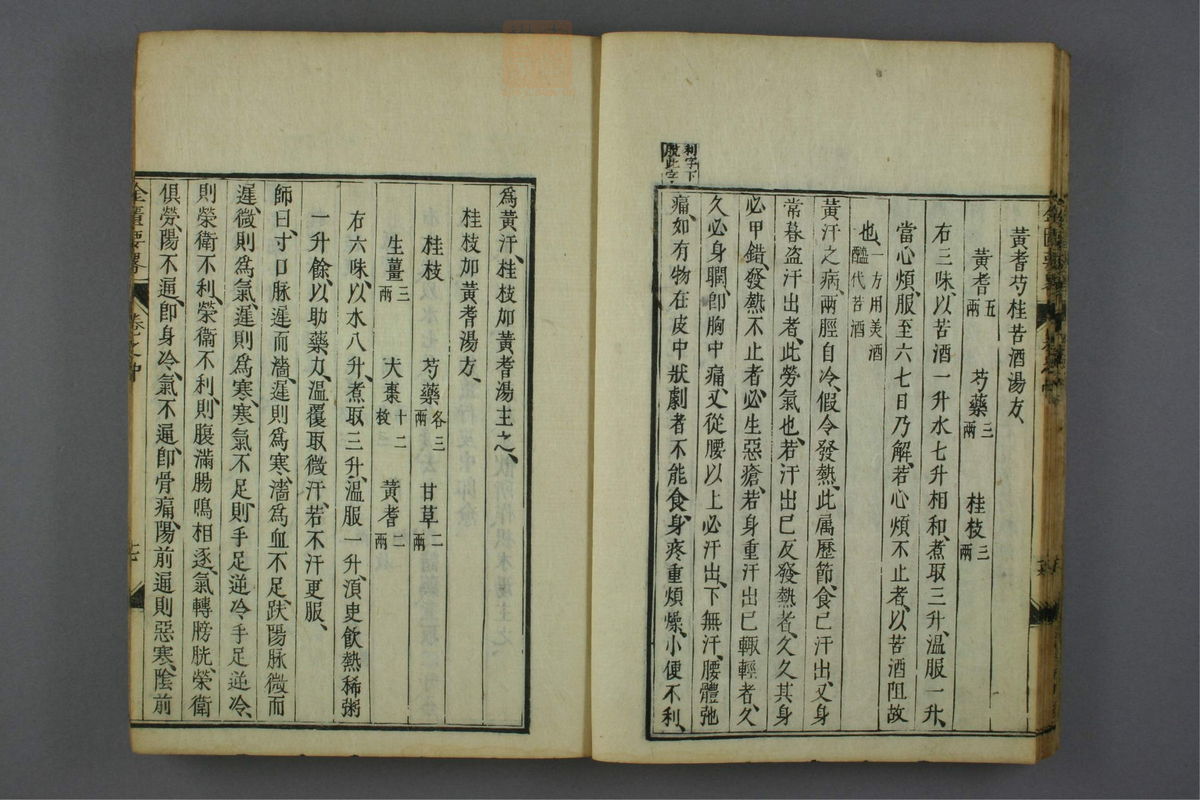 黃耆芍桂苦酒湯方、
黃耆五兩 芍藥三兩 桂枝三兩
右三味、以苦酒一升水七升相和、煮取三升、溫服一升、
當心煩、服至六七日乃解、若心煩不止者、以苦酒阻故
也、一方用美酒醯代苦酒
黃汗之病、兩脛自冷、假令發熱、此属歷節、食已汗出、又身
常暮盗汗出者、此勞氣也、若汗出已反發熱者、久久其身
必甲錯、發熱不止者、必生惡瘡、若身重汗出已輙輕者、久
久必身瞤、卽胸中痛、又從腰以上必汗出、下無汗、腰體弛
痛、如有物在皮中狀、劇者不能食、身疼重煩燥、小便不利、
利字下
脫此字
爲黃汗、桂枝加黃耆湯主之、
桂枝加黃耆湯方、
桂枝 芍藥各三兩 甘草二兩
生薑三兩 大棗十二枚 黃耆二兩
右六味、以水八升、煮取三升、溫服一升、湏臾飲熱稀粥
一升餘、以助藥力、溫覆取微汗、若不汗更服、
師曰、寸口脉遲而濇、遲則爲寒、濇爲血不足、趺陽脉微而
遲、微則爲氣、遲則爲寒、寒氣不足、則手足逆冷、手足逆冷、
則榮衛不利、榮衛不利、則腹滿腸鳴相逐、氣轉膀胱、榮衛
俱勞、陽不通、卽身冷、氣不通、卽骨痛、陽前通則惡寒、陰前
金匱要畧 卷之中